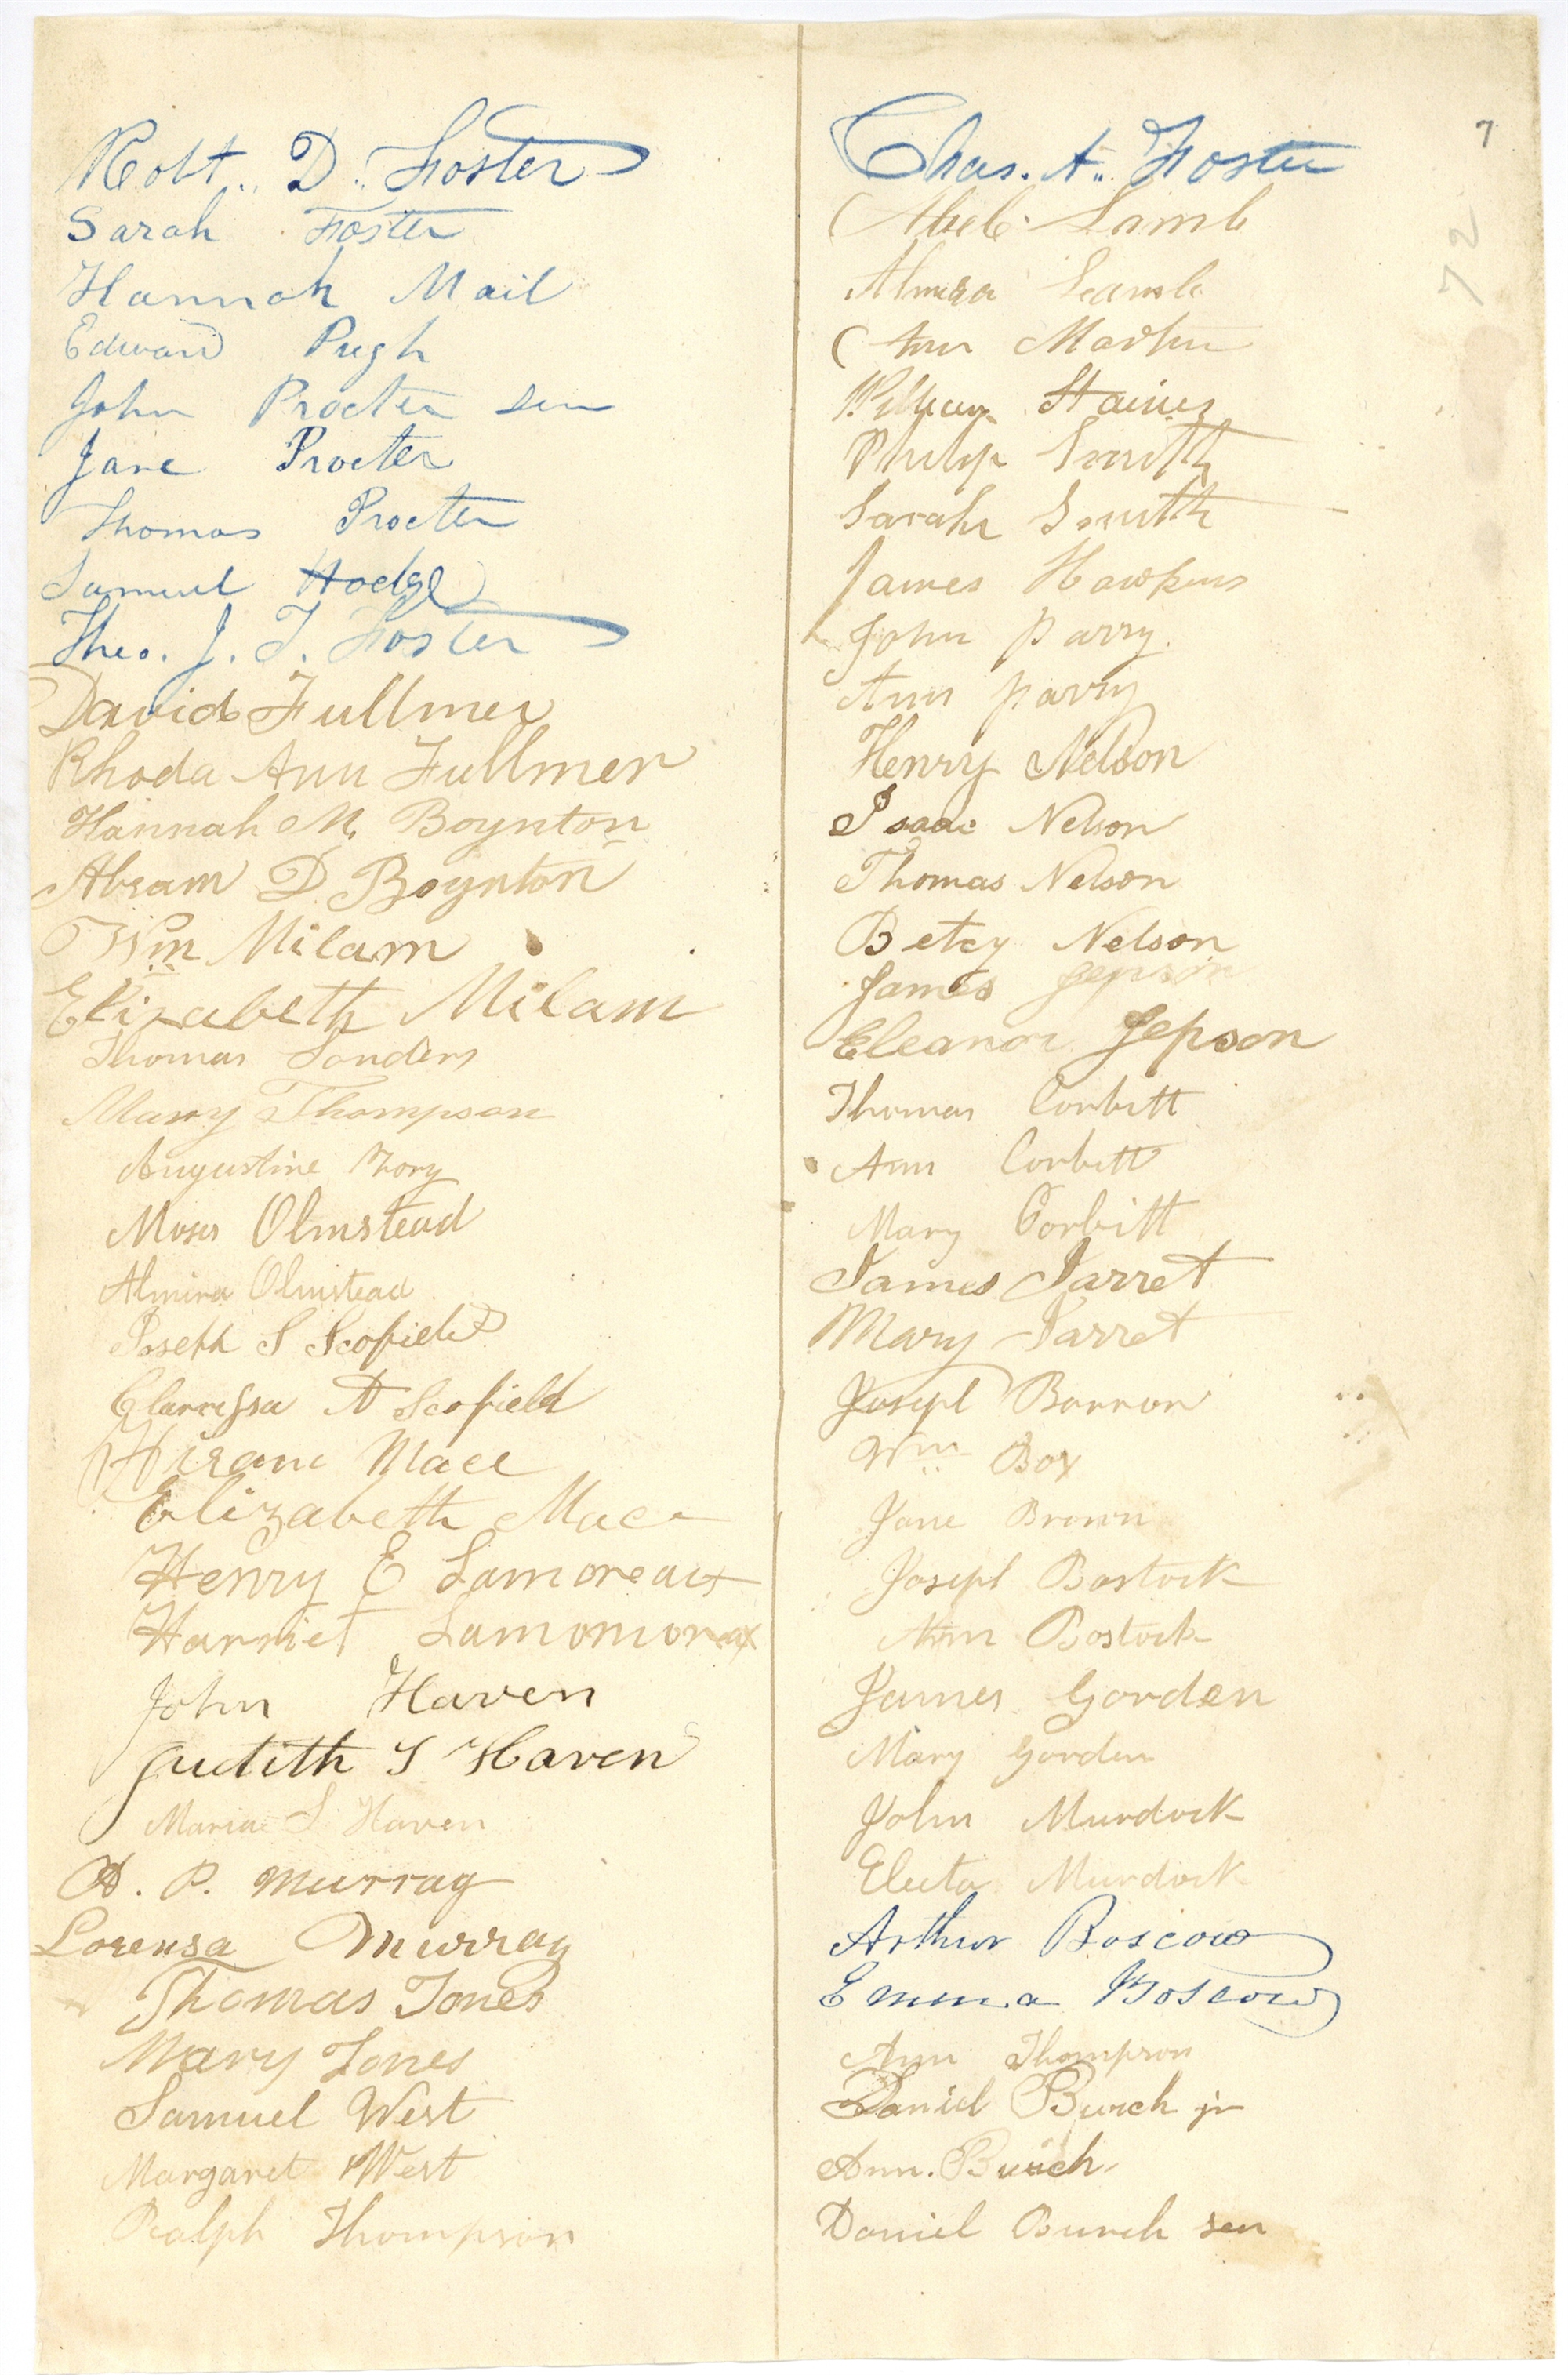 Robt. D. Foster
Sarah Foster
Hannah Mail
Edward Pugh
John Procter Sen
Jane Procter
Thomas Procter
Samuel Hodge
Theo. J. T. Foster
David Fullmer
Rhoda Ann Fullmer
Hannah M. Boynton
Abram D. Boynton
Wm Milam
Elizabeth Milam
Thomas Sanders
Mary Thompson
Augustine
Moses Olmstead
Almira Olmstead
Joseph S Scofield
Clarressa A Scofield
Hiram Mace
Elizabeth Mace
Henry E Lamoreaux
Harriet
John Haven
Judith T Haven
Maria S Haven
A. P. Murray
Lorensa Murray
Thomas Jones
Mary Jones
Samuel West
Margaret West
Ralph Thompson
7
72
Chas. A. Foster
Abel Lamb
Almira Lamb
Ann
William Staines
Philip Smith
Sarah Smith
James Hawkins
John Parry.
Ann Parry
Henry Nelson
Isaac Nelson
Thomas Nelson
Betcy Nelson
James Jepson
Eleanor Jepson
Thomas Corbitt
Ann Corbitt
Mary Corbitt
James Jarret
Mary Jarret
Joseph Barron
Wm Box
Jane Brown
Joseph Bostock
Ann Bostock
James Gorden
Mary Gorden
John Murdock
Electa Murdock
Arthur Boscow
Emma Boscow
Ann Thompson
Daniel Burch jr
Ann. Burch
Daniel Burch sen